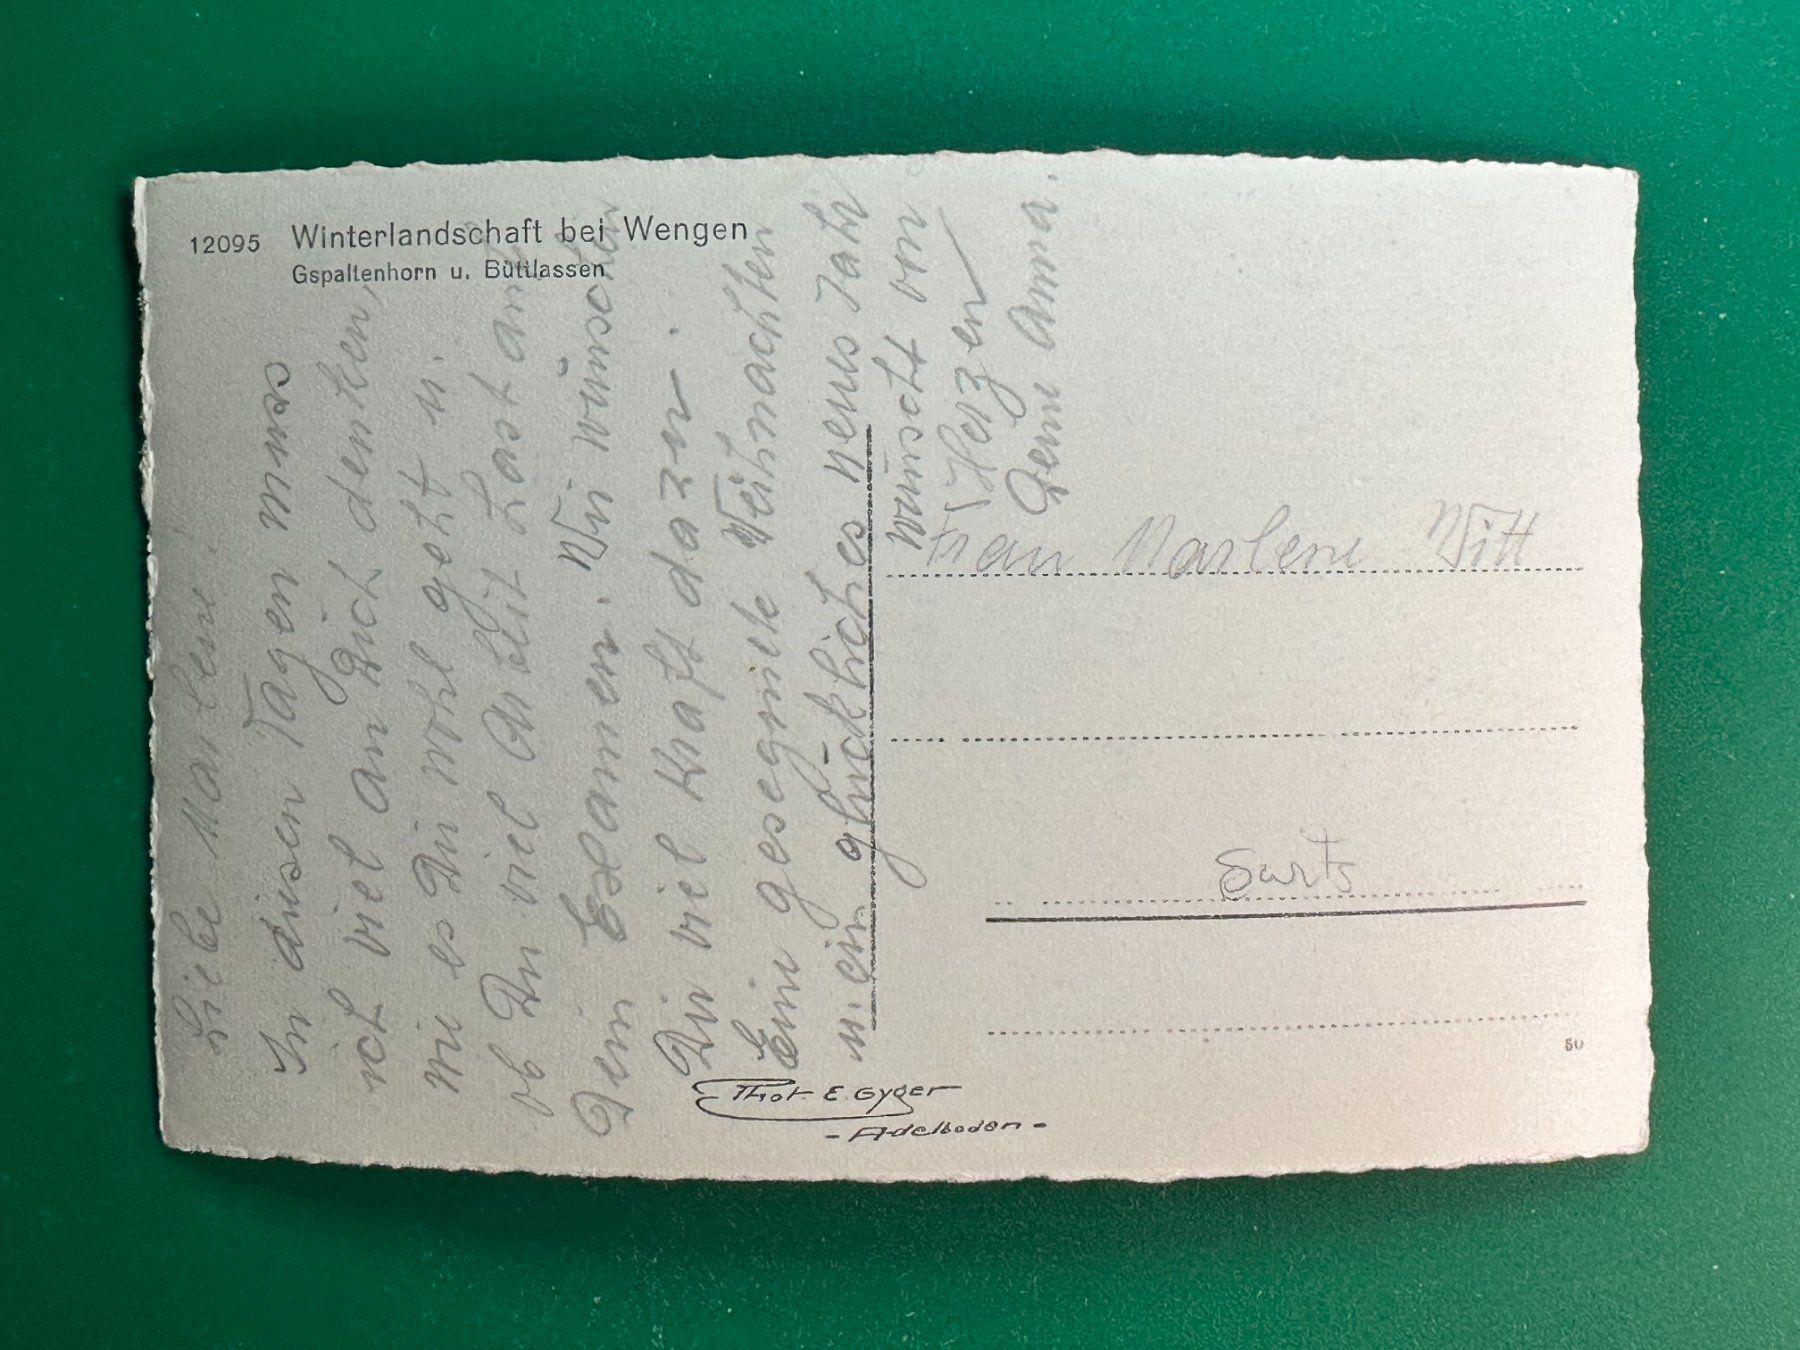 12095 Winterlandschaft bei Wengen
Gspaltenhorn u. Büttlassen
Liebe Marlene!
In diesen Tagen muss
ich viel an Dich denken,
wie es Dir wohl geht u.
ob Du viel Arbeit hast auf
Dein Examen. Wir wünschen
Dir viel Kraft dazu.
Eine gesegnete Weihnachten
u. ein glückliches neues Jahr
wünscht von
Herzen
Deine Anna.
Frau Marlene Witt
50
Phot. E. Gyger
- Adelboden -